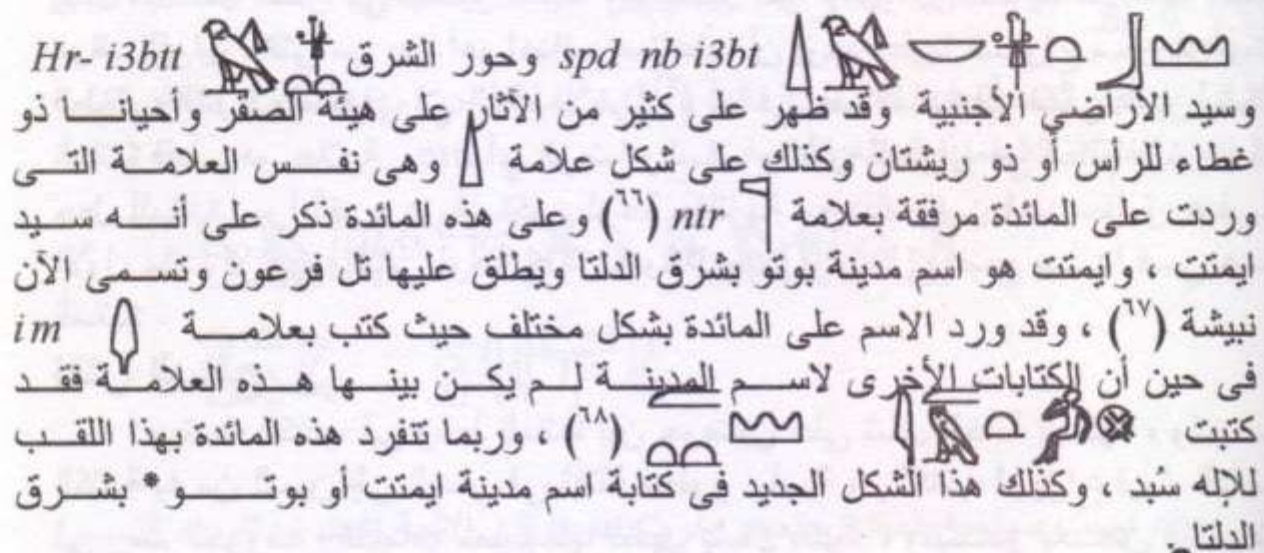 spd nb i3bt وحور الشرق Hr- i3btt
وسيد الأراضي الأجنبية وقد ظهر على كثير من الأثار على هيئة الصقر وأحيانا ذو
غطاء للرأس أو ذو ريشتان وكذلك على شكل علامة وهى نفس العلامة التى
وردت على المائدة مرفقة بعلامة ntr (٦٦) وعلى هذه المائدة ذكر على أنه سيد
ايمتت ، وايمتت هو اسم مدينة بوتو بشرق الدلتا ويطلق عليها تل فرعون وتسمى الآن
نبيشة (٦٧) ، وقد ورد الاسم على المائدة بشكل مختلف حيث كتب بعلامة im
فى حين أن الكتابات الأخرى لاسم المدينة لم يكن بينها هذه العلامة فقد
كتبت (٦٨) ، وربما تتفرد هذه المائدة بهذا اللقب
للإله سُبد ، وكذلك هذا الشكل الجديد فى كتابة اسم مدينة ايمتت أو بوتو* بشرق
الدلتا .